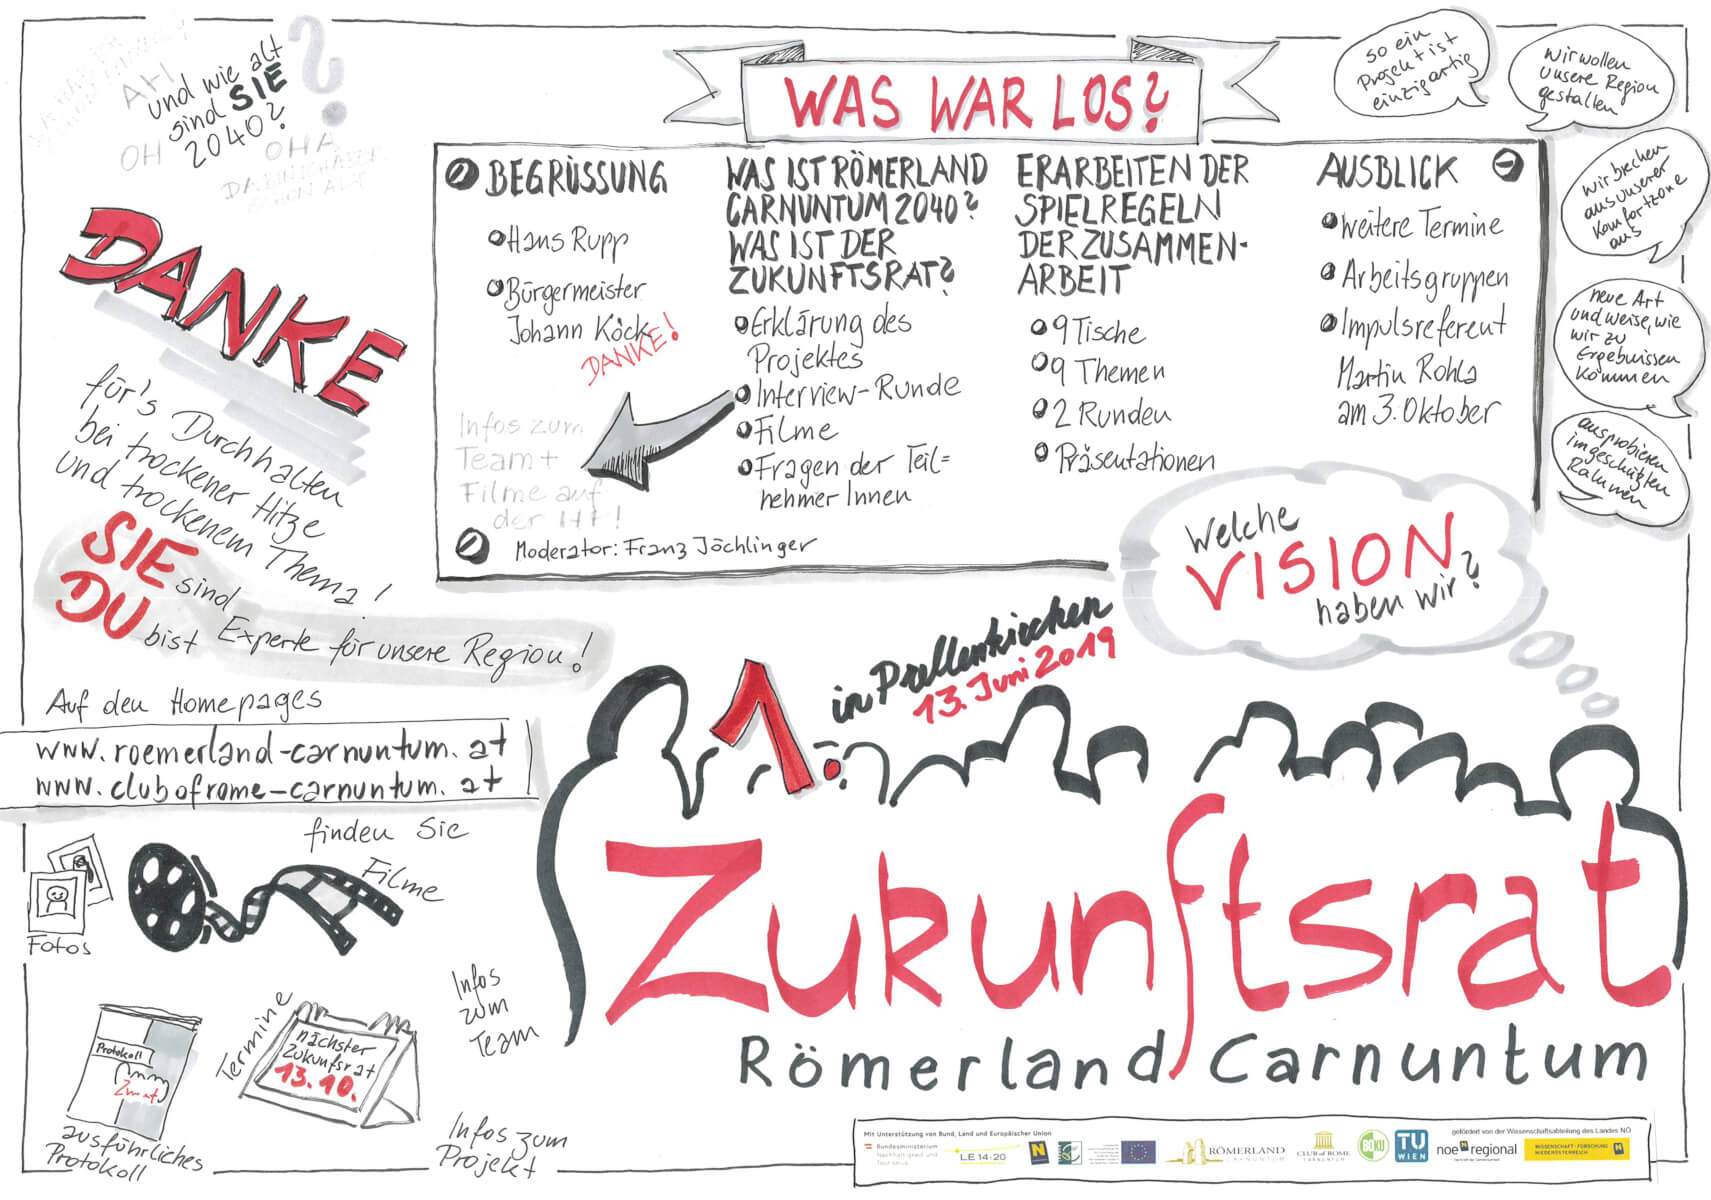 und wie alt
sind SIE
2040?
AH
OH
OHA
DANKE
für's Durchhalten
bei trockener Hitze
und trockenem Thema!
SIE sind
DU bist Experte für unsere Region!
Auf den Homepages
www.roemerland-carnuntum.at
www.clubofrome-carnuntum.at
finden Sie
Filme
Fotos
Protokoll
Zrat
ausführliches
Protokoll
Termine
nächster
Zukunfsrat
13.10.
Infos
zum
Team
Infos zum
Projekt
WAS WAR LOS?
BEGRÜSSUNG
Hans Rupp
Bürgermeister
Johann Köck
DANKE!
Infos zum
Team +
Filme auf
der HP!
Moderator: Franz Jöchlinger
WAS IST RÖMERLAND
CARNUNTUM 2040?
WAS IST DER
ZUKUNFTSRAT?
Erklärung des
Projektes
Interview-Runde
Filme
Fragen der Teil=
nehmer Innen
ERARBEITEN DER
SPIELREGELN
DER ZUSAMMEN-
ARBEIT
9 Tische
9 Themen
2 Runden
Präsentationen
AUSBLICK
Weitere Termine
Arbeitsgruppen
Impulsreferent
Martin Rohla
am 3. Oktober
so ein
Projekt ist
einzigartig
wir wollen
unsere Region
gestalten
wir brechen
aus unserer
Komfortzone
aus
neue Art
und Weise, wie
wir zu
Ergebnissen
kommen
ausprobieren
im geschützten
Rahmen
Welche
VISION
haben wir?
1.
in Prellenkirchen
13. Juni 2019
Zukunftsrat
Römerland Carnuntum
Mit Unterstützung von Bund, Land und Europäischer Union
Bundesministerium
Nachhaltigkeit und
Tourismus
LE 14-20
RÖMERLAND
CARNUNTUM
CLUB OF ROME
CARNUNTUM
BOKU
TU
WIEN
gefördert von der Wissenschaftsabteilung des Landes NÖ
noe regional
WISSENSCHAFT · FORSCHUNG
NIEDERÖSTERREICH